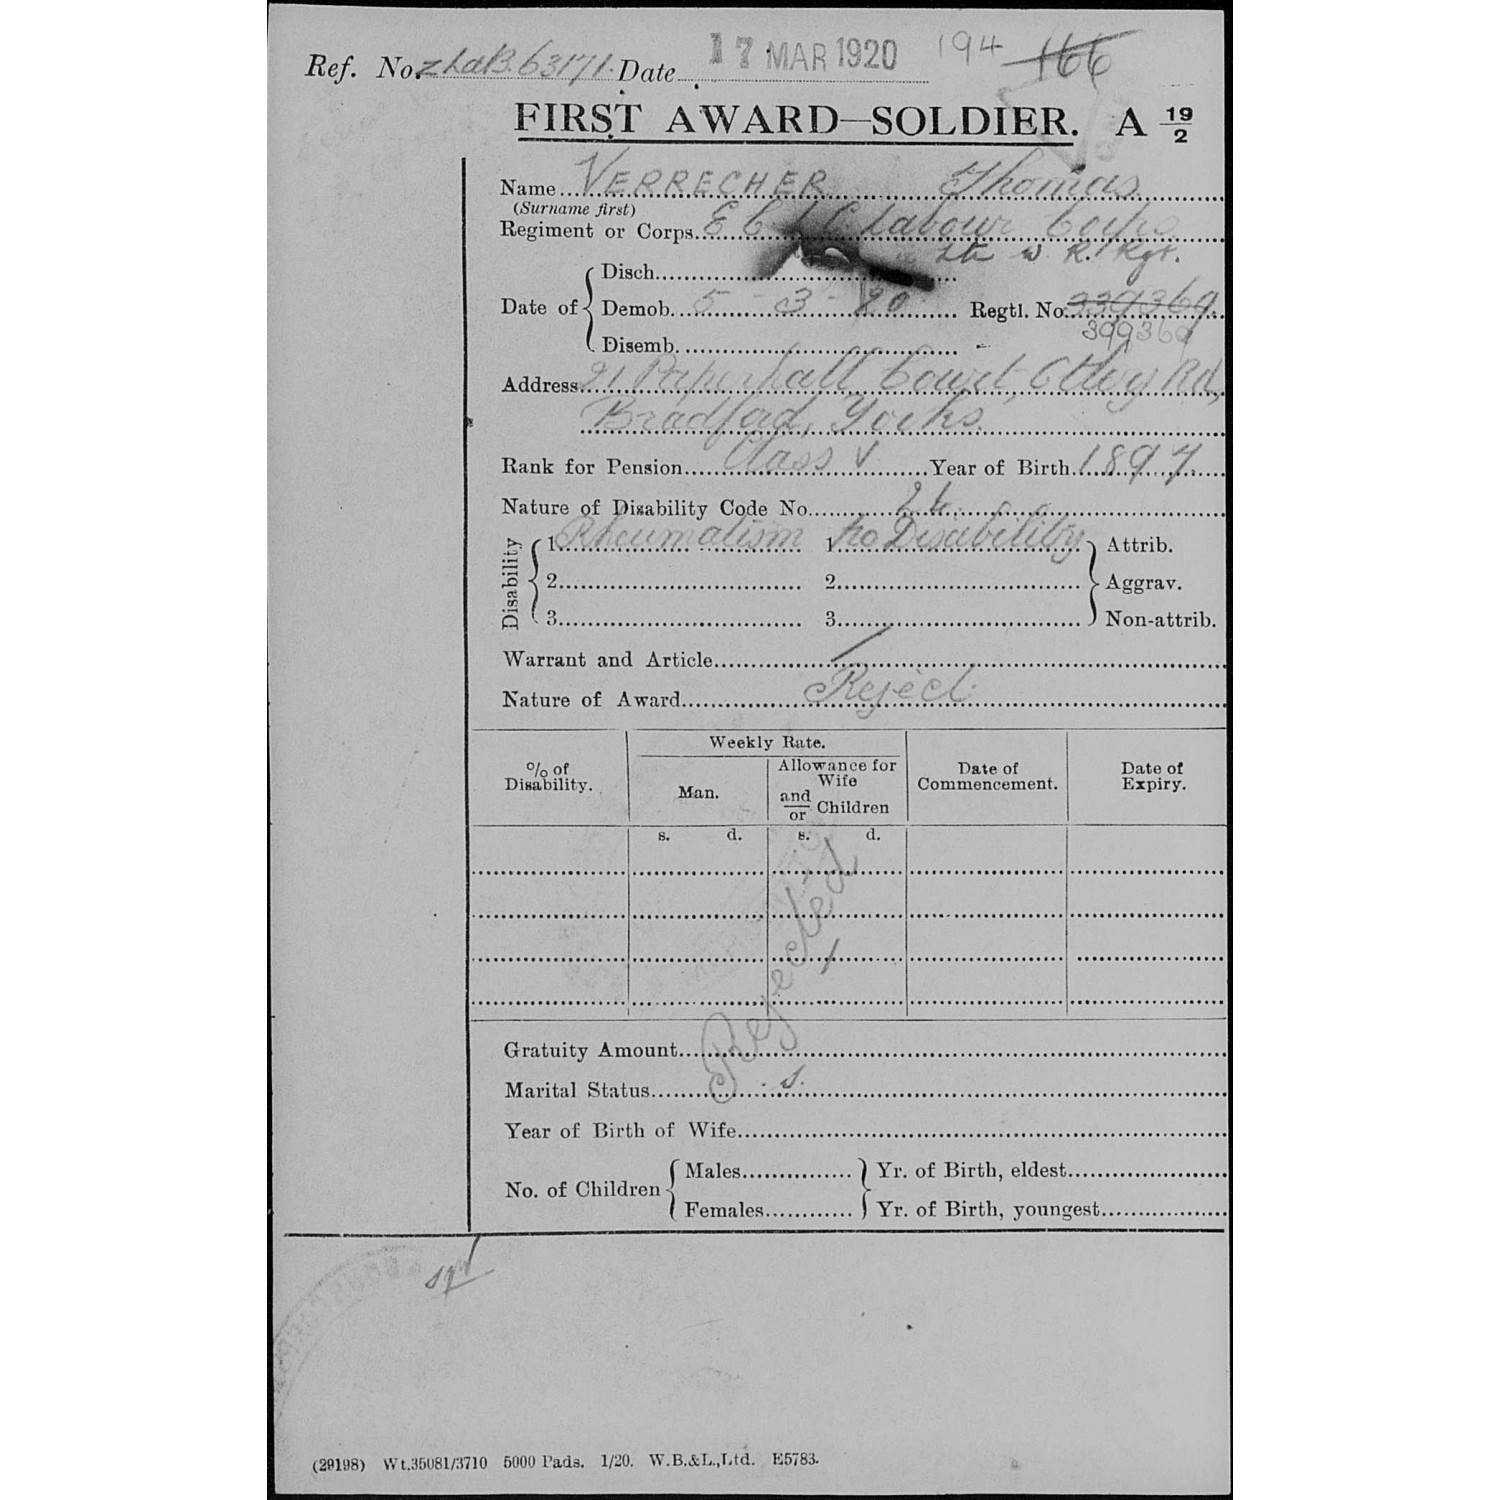 Ref. No. z LaB. 63171. Date 17 MAR 1920 194 166
FIRST AWARD—SOLDIER. A 19/2
Name VERRECHER Thomas
(Surname first)
Regiment or Corps Labour Corps
W R. Rgt.
Disch.
Date of Demob. 5 - 3 - 20 Regtl. No. 339369
399369
Disemb.
Address 21 Paperhall Court, Otley Rd,
Bradford, Yorks.
Rank for Pension Class V Year of Birth 1897
Nature of Disability Code No.
Disability 1 Rheumatism 1 No Disability Attrib.
2 2 Aggrav.
3 3 Non-attrib.
Warrant and Article
Nature of Award Reject.
% of Disability. Weekly Rate. Date of Commencement. Date of Expiry.
Man. Allowance for Wife and/or Children
s. d. s. d.
Rejected
Gratuity Amount
Marital Status S.
Year of Birth of Wife
No. of Children Males Yr. of Birth, eldest
Females Yr. of Birth, youngest
(29198) Wt.35081/3710 5000 Pads. 1/20. W.B.&L.,Ltd. E5783.